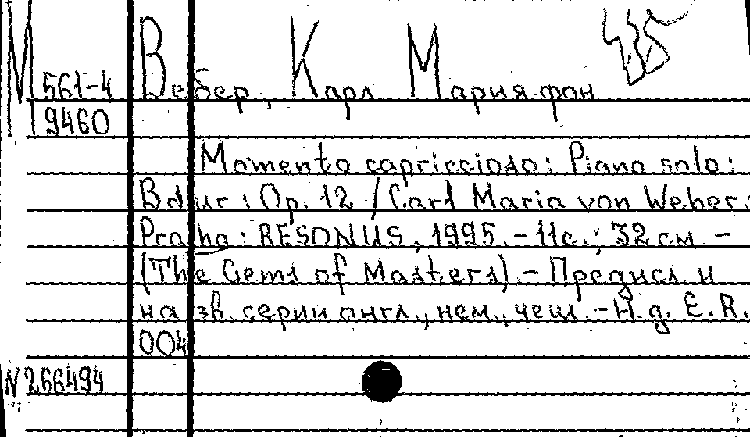 М 561-4 Вебер, Карл Мария фон 435
9460
Momento capriccioso: Piano solo:
B dur: Op. 12 / Carl Maria von Weber.
Praha: RESONUS, 1995. - 11с.; 32 см. -
(The Gems of Masters). - Предисл. и
назв. серии англ., нем., чеш. - H. g. E. R.
004
N 266494